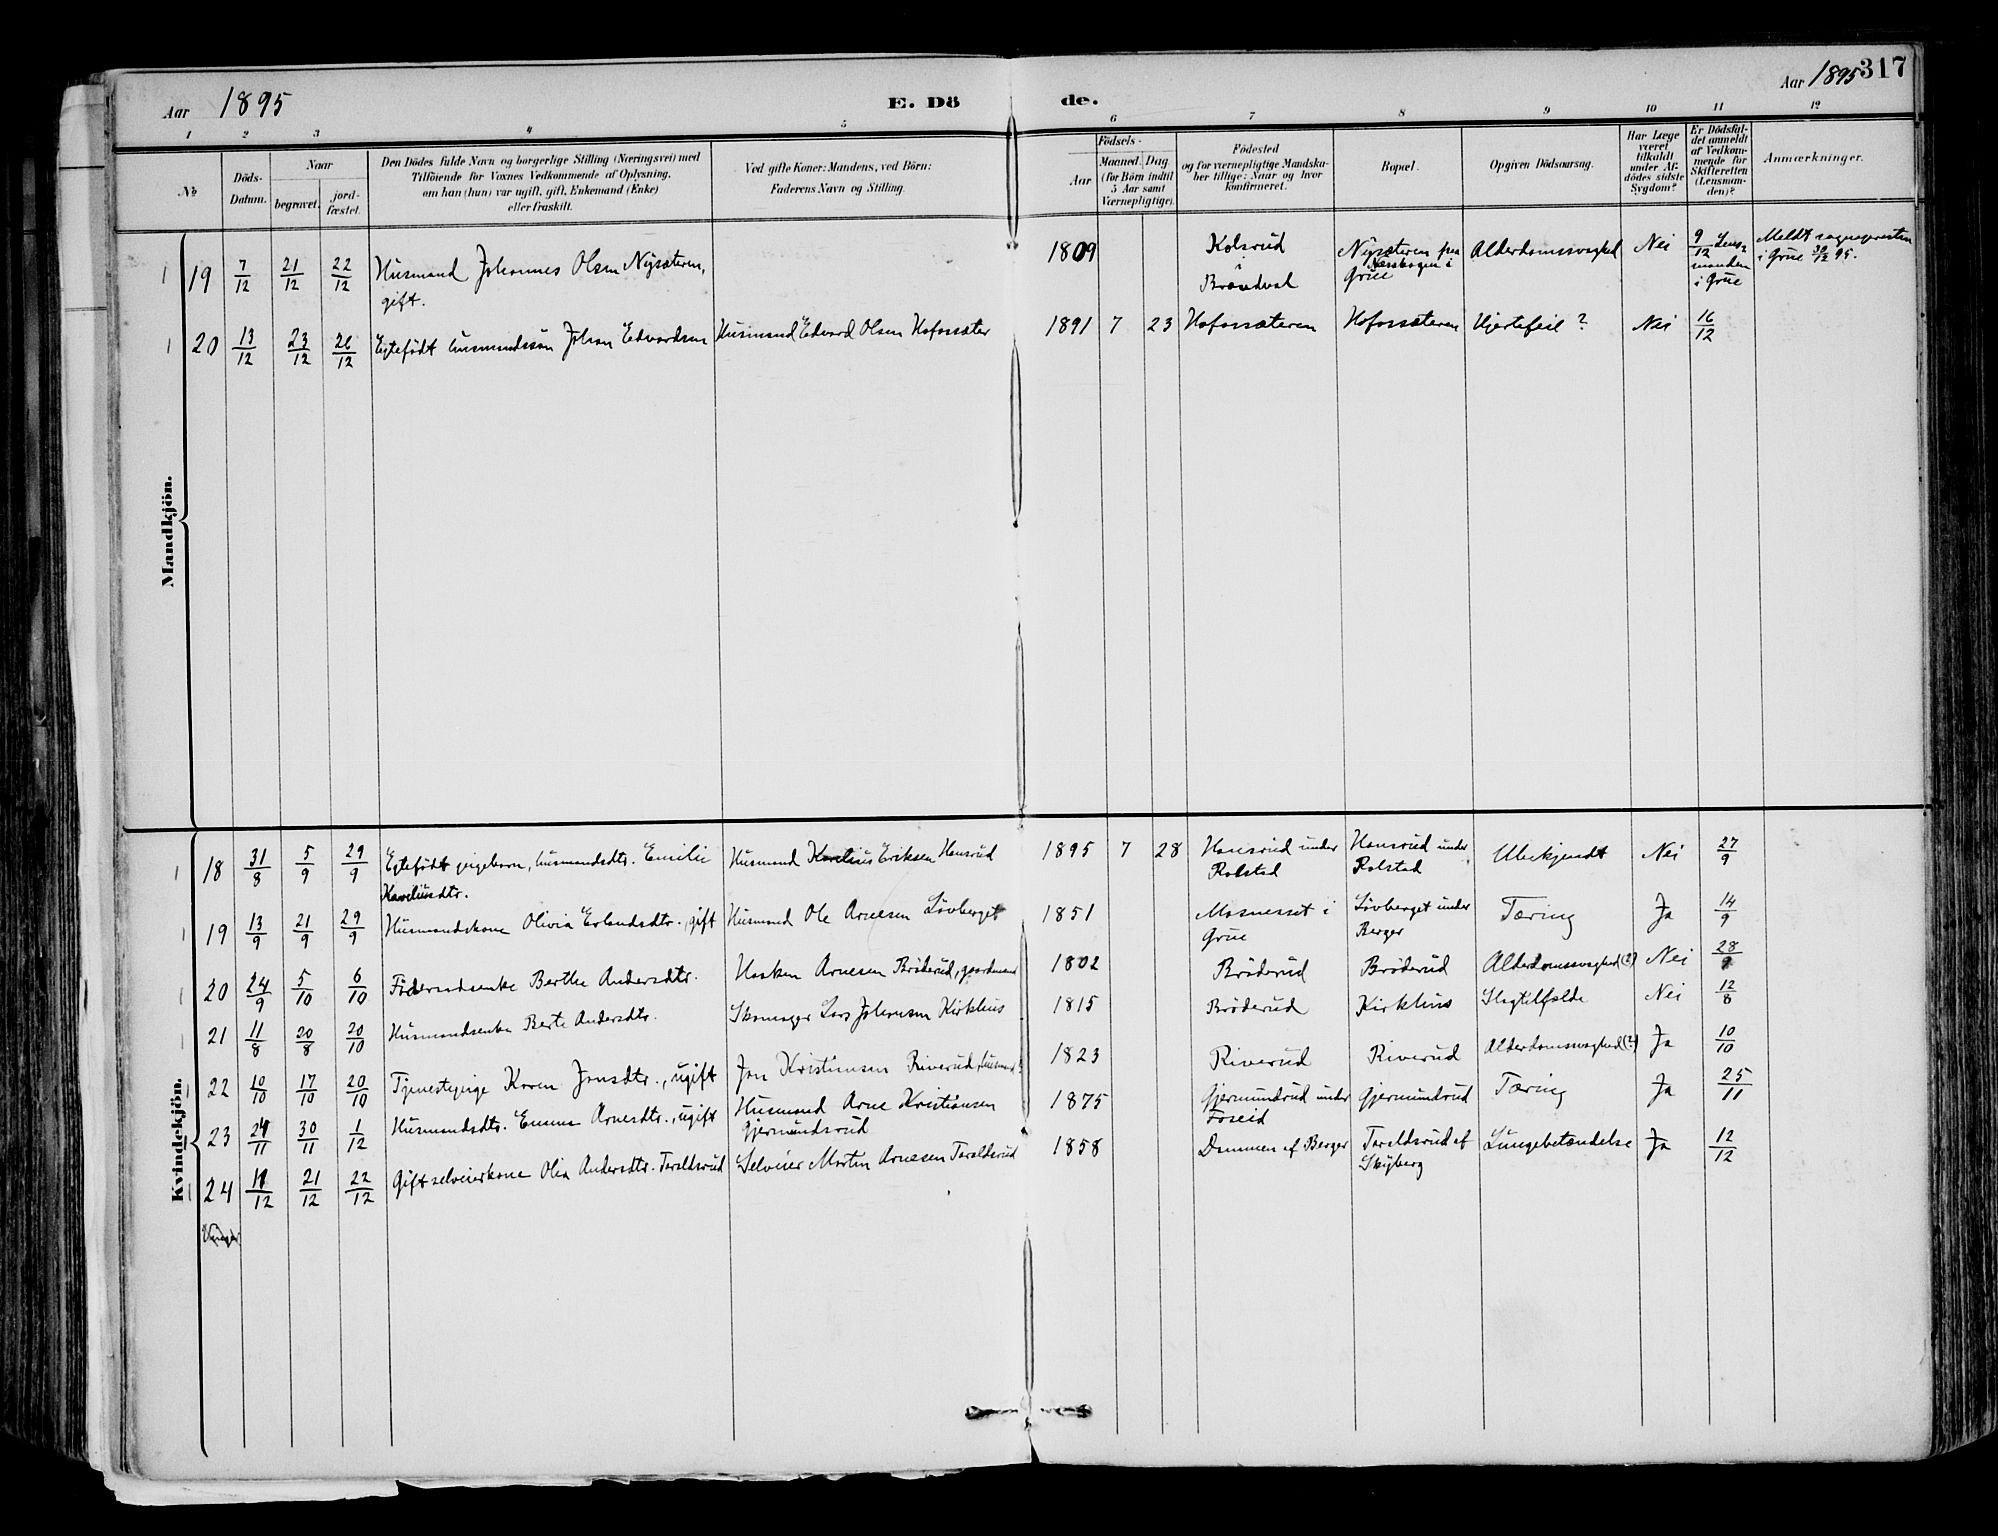 Aar 1895
E. Dö
de.
Aar 1895
317
1 2 3 4 5 6 7 8 9 10 11 12
No
Döds-
Datum.
Naar
begravet.
jord-
fæstet.
Den Dödes fulde Navn og borgerlige Stilling (Næringsvei) med
Tilföiende for Voxnes Vedkommende af Oplysning,
om han (hun) var ugift, gift, Enkemand (Enke)
eller fraskilt.
Ved gifte Koner: Mandens, ved Börn:
Faderens Navn og Stilling.
Födsels-
Aar
Maaned. Dag
(for Börn indtil
5 Aar samt
Værnepligtige).
Födested
og for værnepligtige Mandska-
ber tillige: Naar og hvor
konfirmeret.
Bopæl.
Opgiven Dödsaarsag.
Har Læge
været
tilkaldt
under Af-
dödes sidste
Sygdom?
Er Dödsfal-
det anmeldt
af Vedkom-
mende for
Skifteretten
(Lensman-
den)?
Anmærkninger.
Mandkjön.
19 7/12 21/12 22/12 Husmand Johannes Olsen Nysæteren, 1809 Kolsrud Nysæteren paa Alderdomssvaghed Nei 9/12 Lens- Meldt sognepresten
gift. Brandval Næsskogen i manden i Grue 30/12 95.
Grue i Grue
20 13/12 23/12 26/12 Egtefödt husmandssön Johan Edvardsen Husmand Edvard Olsen Hofossæter 1891 7 23 Hofossæteren Hofossæteren Hjertefeil? Nei 16/12
Kvindekjön.
18 31/8 5/9 29/9 Egtefödt pigebarn, husmandsdtr. Emilie Husmand Karelius Eriksen Hansrud 1895 7 28 Hansrud under Hansrud under Ubekjendt Nei 27/9
Kareliusdtr. Rolstad Rolstad
19 13/9 21/9 29/9 Husmandskone Olivia Erlandsdtr., gift Husmand Ole Arnesen Lövberget 1851 Mosnesset i Lövberget under Tæring Ja 14/9
Grue Berger
20 24/9 5/10 6/10 Berthe Andersdtr. Haaken Arnesen Bröderud, gaardmand 1802 Bröderud Bröderud Alderdomssvaghed(?) Nei 28/9
21 11/8 20/8 20/10 Husmandsenke Berte Andersdtr. Skomager Lars Johansen Kirkhus 1815 Bröderud Kirkhus Slagtilfælde Nei 12/8
22 10/10 17/10 20/10 Tjenestepige Karen Jonsdtr., ugift Jon Kristiansen Riverud, husmand 1823 Riverud Riverud Alderdomssvaghed(?) Ja 10/10
23 24/11 30/11 1/12 Husmandsdtr. Emma Arnesdtr., ugift Husmand Arne Kristiansen 1875 Gjermundrud under Gjermundrud Tæring Ja 25/11
Gjermundsrud Foseid
24 11/12 21/12 22/12 Gift selveierkone Olia Andersdtr. Taraldsrud Selveier Morten Arnesen Taraldsrud 1858 Dammen af Berger Taraldsrud af Lungebetændelse Ja 12/12
Skyberg